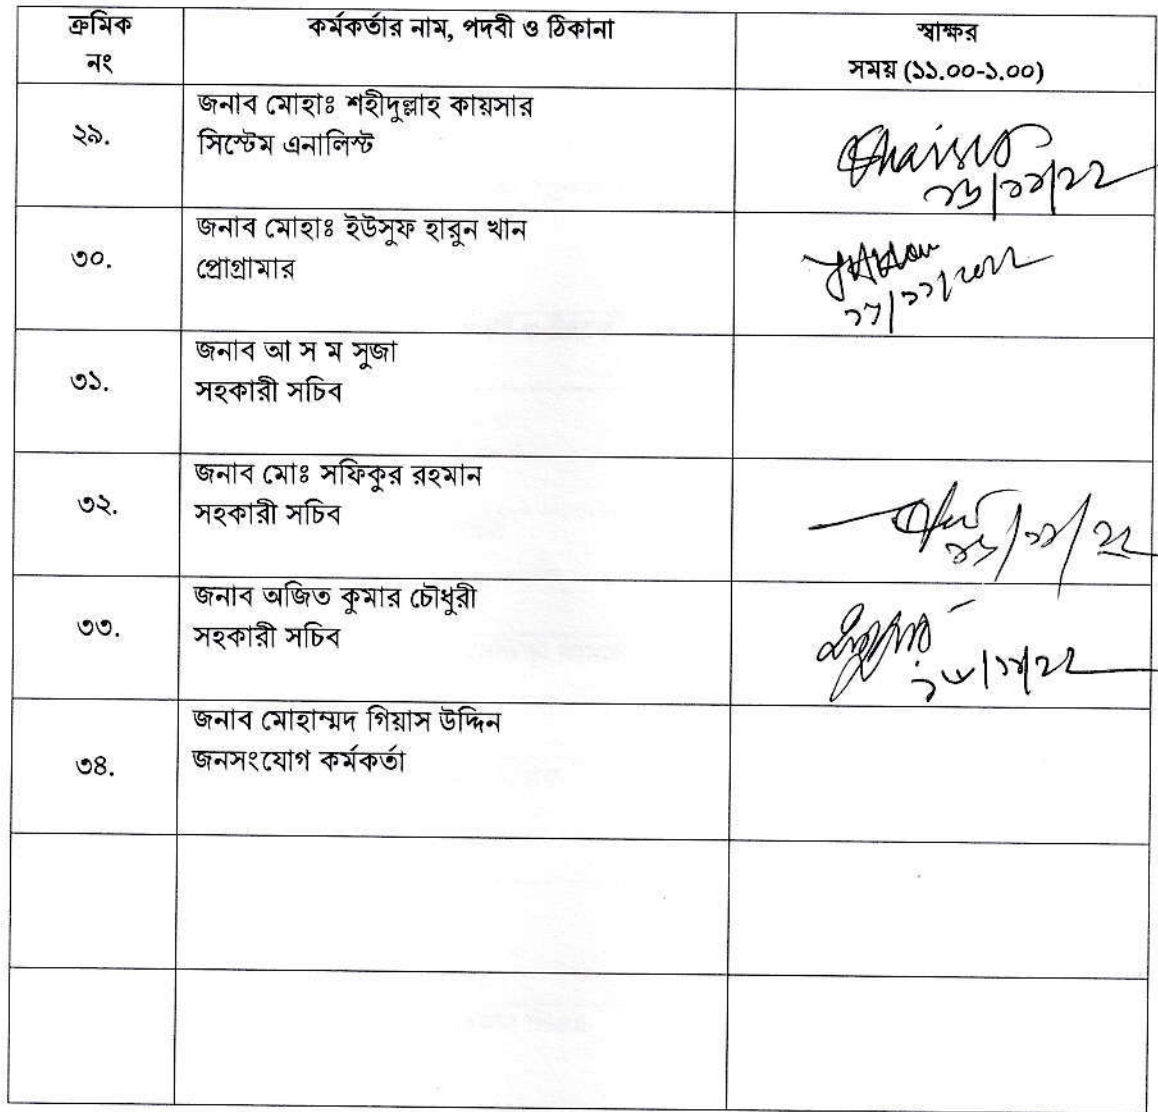 ক্রমিক
নং
কর্মকর্তার নাম, পদবী ও ঠিকানা
স্বাক্ষর
সময় (১১.০০-১.০০)
২৯.
জনাব মোহাঃ শহীদুল্লাহ কায়সার
সিস্টেম এনালিস্ট
৩০.
জনাব মোহাঃ ইউসুফ হারুন খান
প্রোগ্রামার
৩১.
জনাব আ স ম সুজা
সহকারী সচিব
৩২.
জনাব মোঃ সফিকুর রহমান
সহকারী সচিব
৩৩.
জনাব অজিত কুমার চৌধুরী
সহকারী সচিব
৩৪.
জনাব মোহাম্মদ গিয়াস উদ্দিন
জনসংযোগ কর্মকর্তা